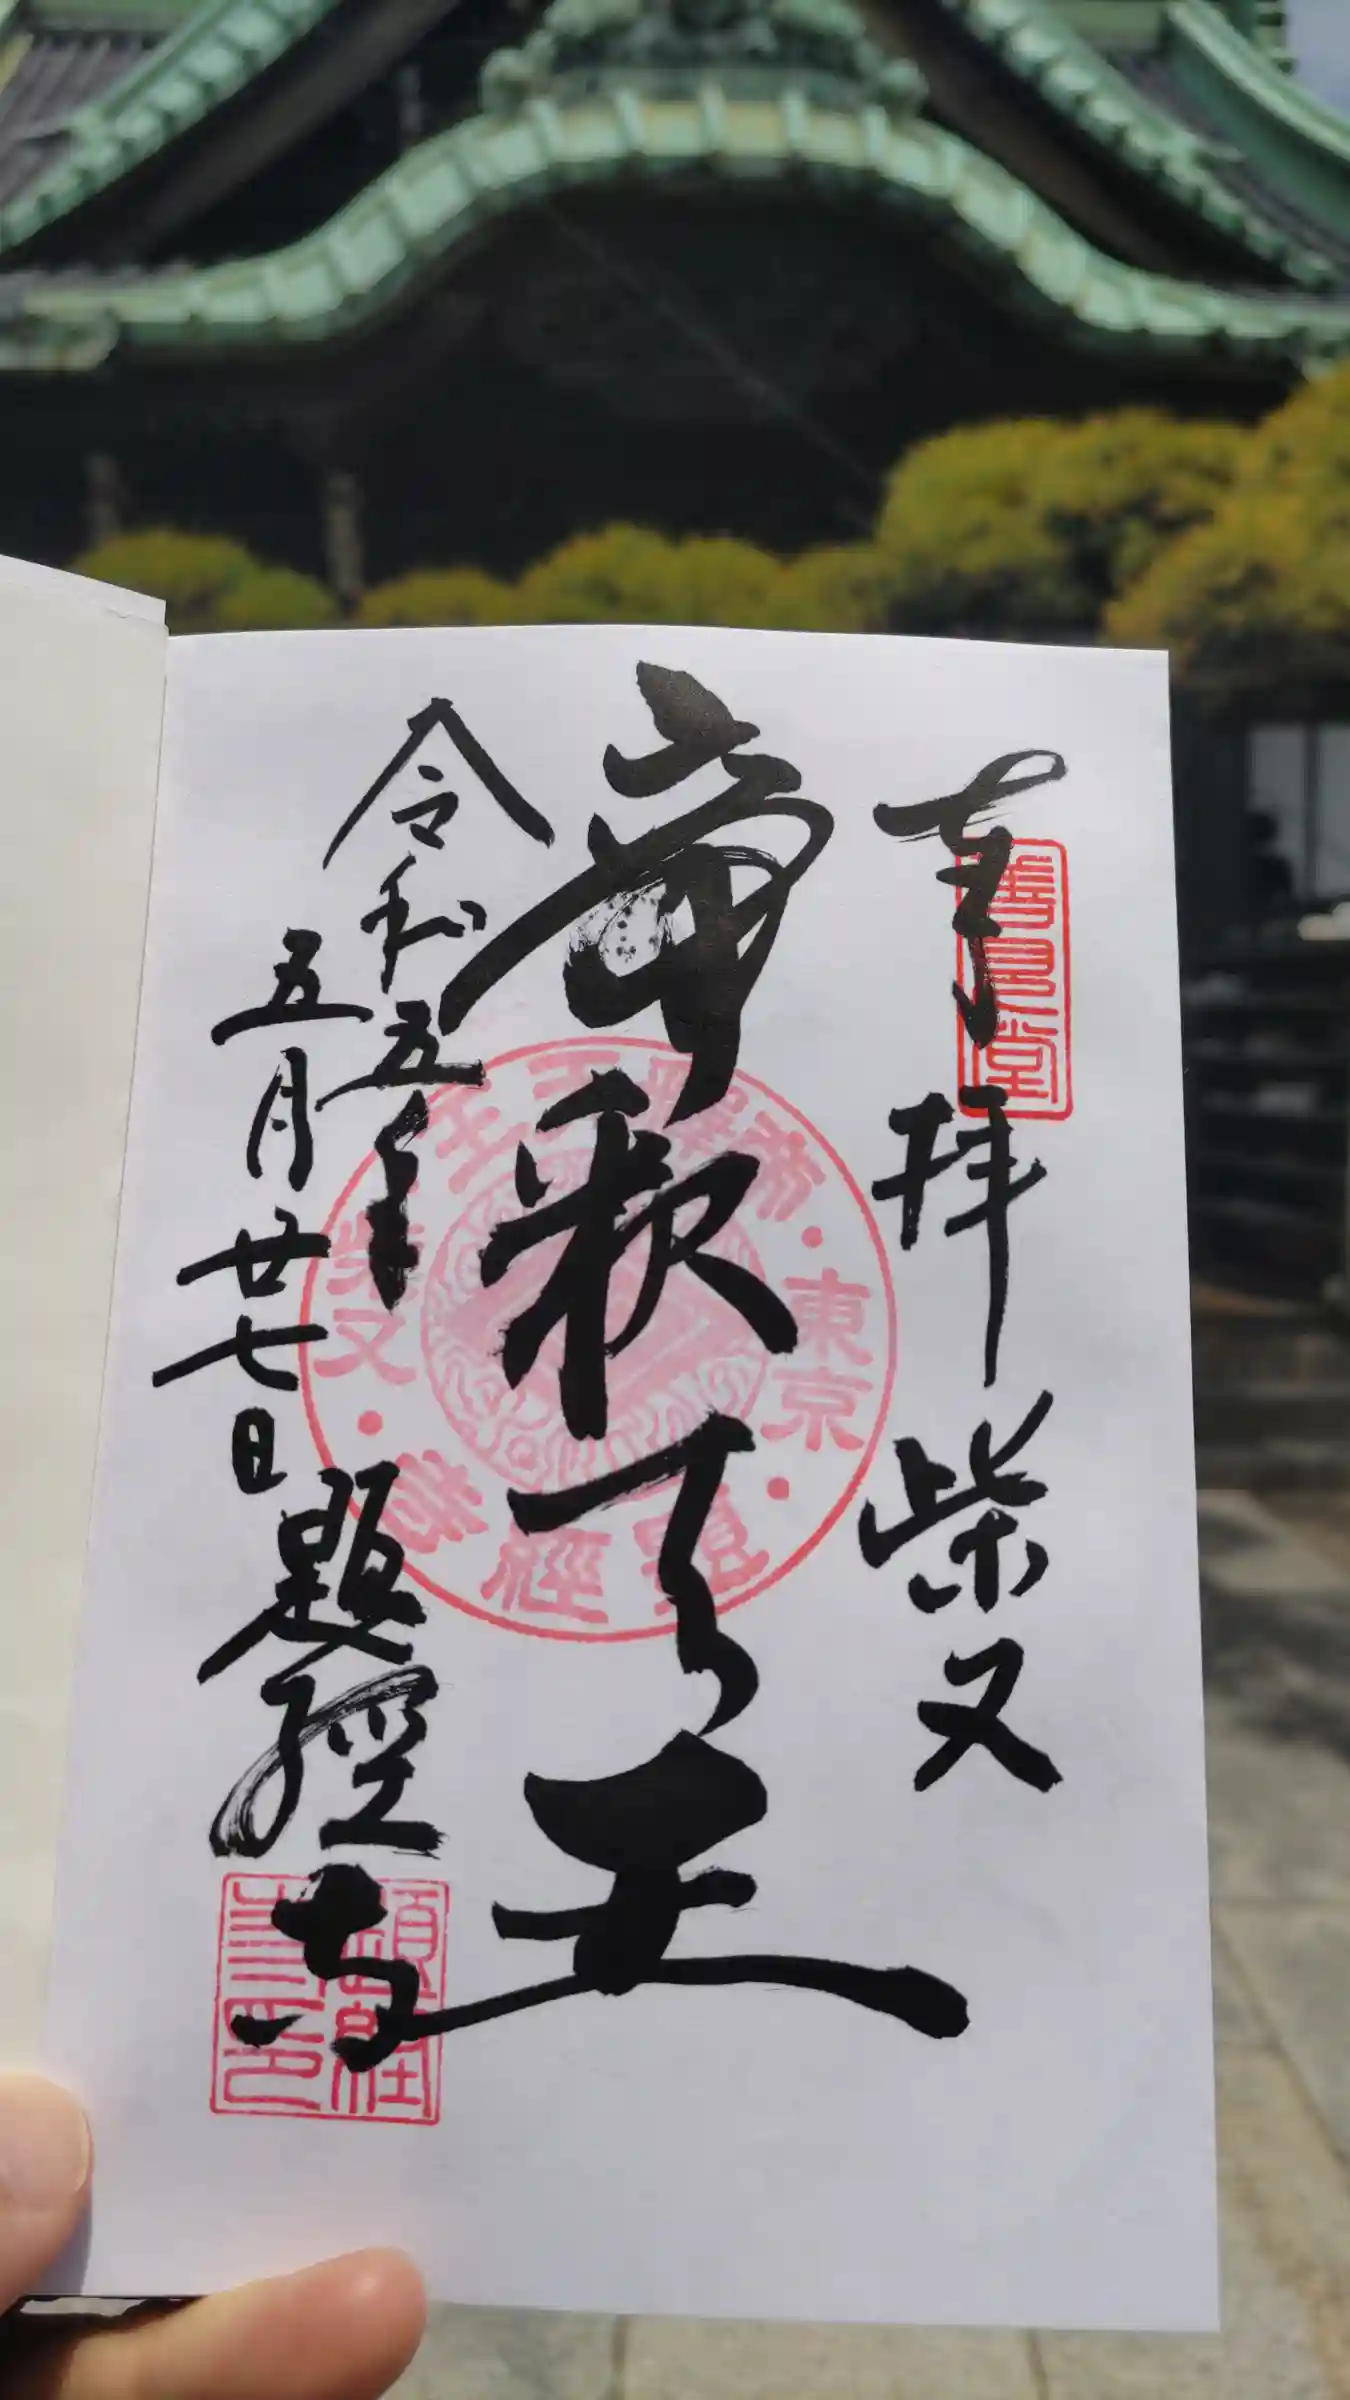 奉拝 柴又
帝釈天王
令和五年
五月廿七日
題經寺
善見堂
帝釋天王・東京・題經寺・柴又